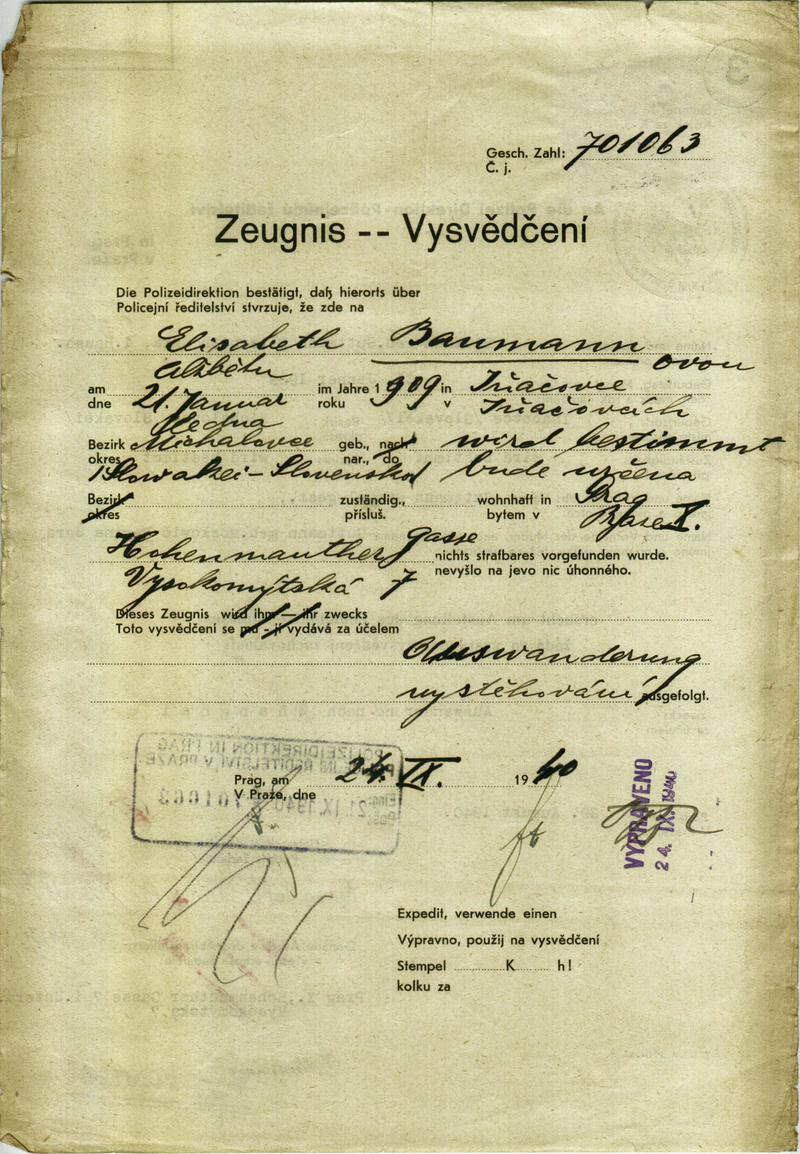 3
Gesch. Zahl: 701063
Č. j.
Zeugnis -- Vysvědčení
Die Polizeidirektion bestätigt, daß hierorts über
Policejní ředitelství stvrzuje, že zde na
Elisabeth Baumann
Alžbětu ovou
am 21. Januar im Jahre 1909 in
dne ledna roku v
Bezirk Michalovce geb., nach wird bestimmt
okres nar., do
Slowakei - Slovensko bude určena
Bezirk zuständig., wohnhaft in Prag
okres přísluš. bytem v Praze X.
Hohenmauther gasse nichts strafbares vorgefunden wurde.
Vysokomýtská 7 nevyšlo na jevo nic úhonného.
Dieses Zeugnis wird ihm — ihr zwecks
Toto vysvědčení se mu - jí vydává za účelem
Auswanderung
vystěhování ausgefolgt.
POLIZEIDIREKTION IN PRAG
ŘEDITELSTVÍ V PRAZE
21. IX. 1940 701063
Prag, am 24. IX. 1940
V Praze, dne
VYPRAVENO
24. IX. 1940
Expedit, verwende einen
Výpravno, použij na vysvědčení
Stempel K h!
kolku za